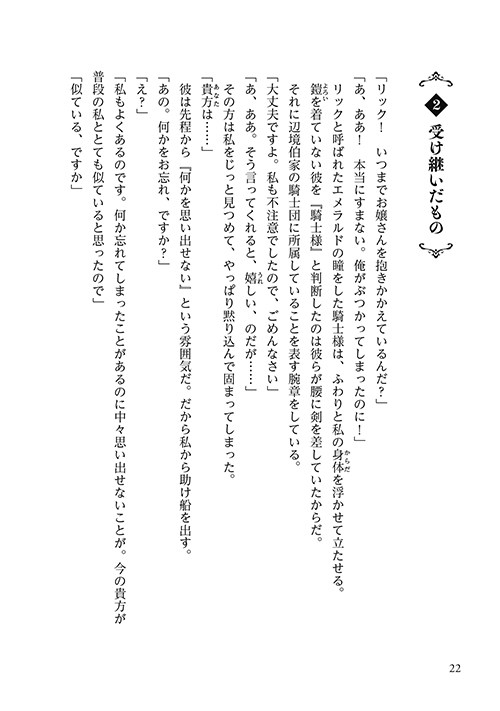 2 受け継いだもの
「リック！　いつまでお嬢さんを抱きかかえているんだ？」
「あ、ああ！　本当にすまない。俺がぶつかってしまったのに！」
リックと呼ばれたエメラルドの瞳をした騎士様は、ふわりと私の身体を浮かせて立たせる。
鎧を着ていない彼を『騎士様』と判断したのは彼らが腰に剣を差していたからだ。
それに辺境伯家の騎士団に所属していることを表す腕章をしている。
「大丈夫ですよ。私も不注意でしたので、ごめんなさい」
「あ、ああ。そう言ってくれると、嬉しい、のだが……」
その方は私をじっと見つめて、やっぱり黙り込んで固まってしまった。
「貴方は……」
彼は先程から『何かを思い出せない』という雰囲気だ。だから私から助け船を出す。
「あの。何かをお忘れ、ですか？」
「え？」
「私もよくあるのです。何か忘れてしまったことがあるのに中々思い出せないことが。今の貴方が
普段の私ととても似ていると思ったので」
「似ている、ですか」
22